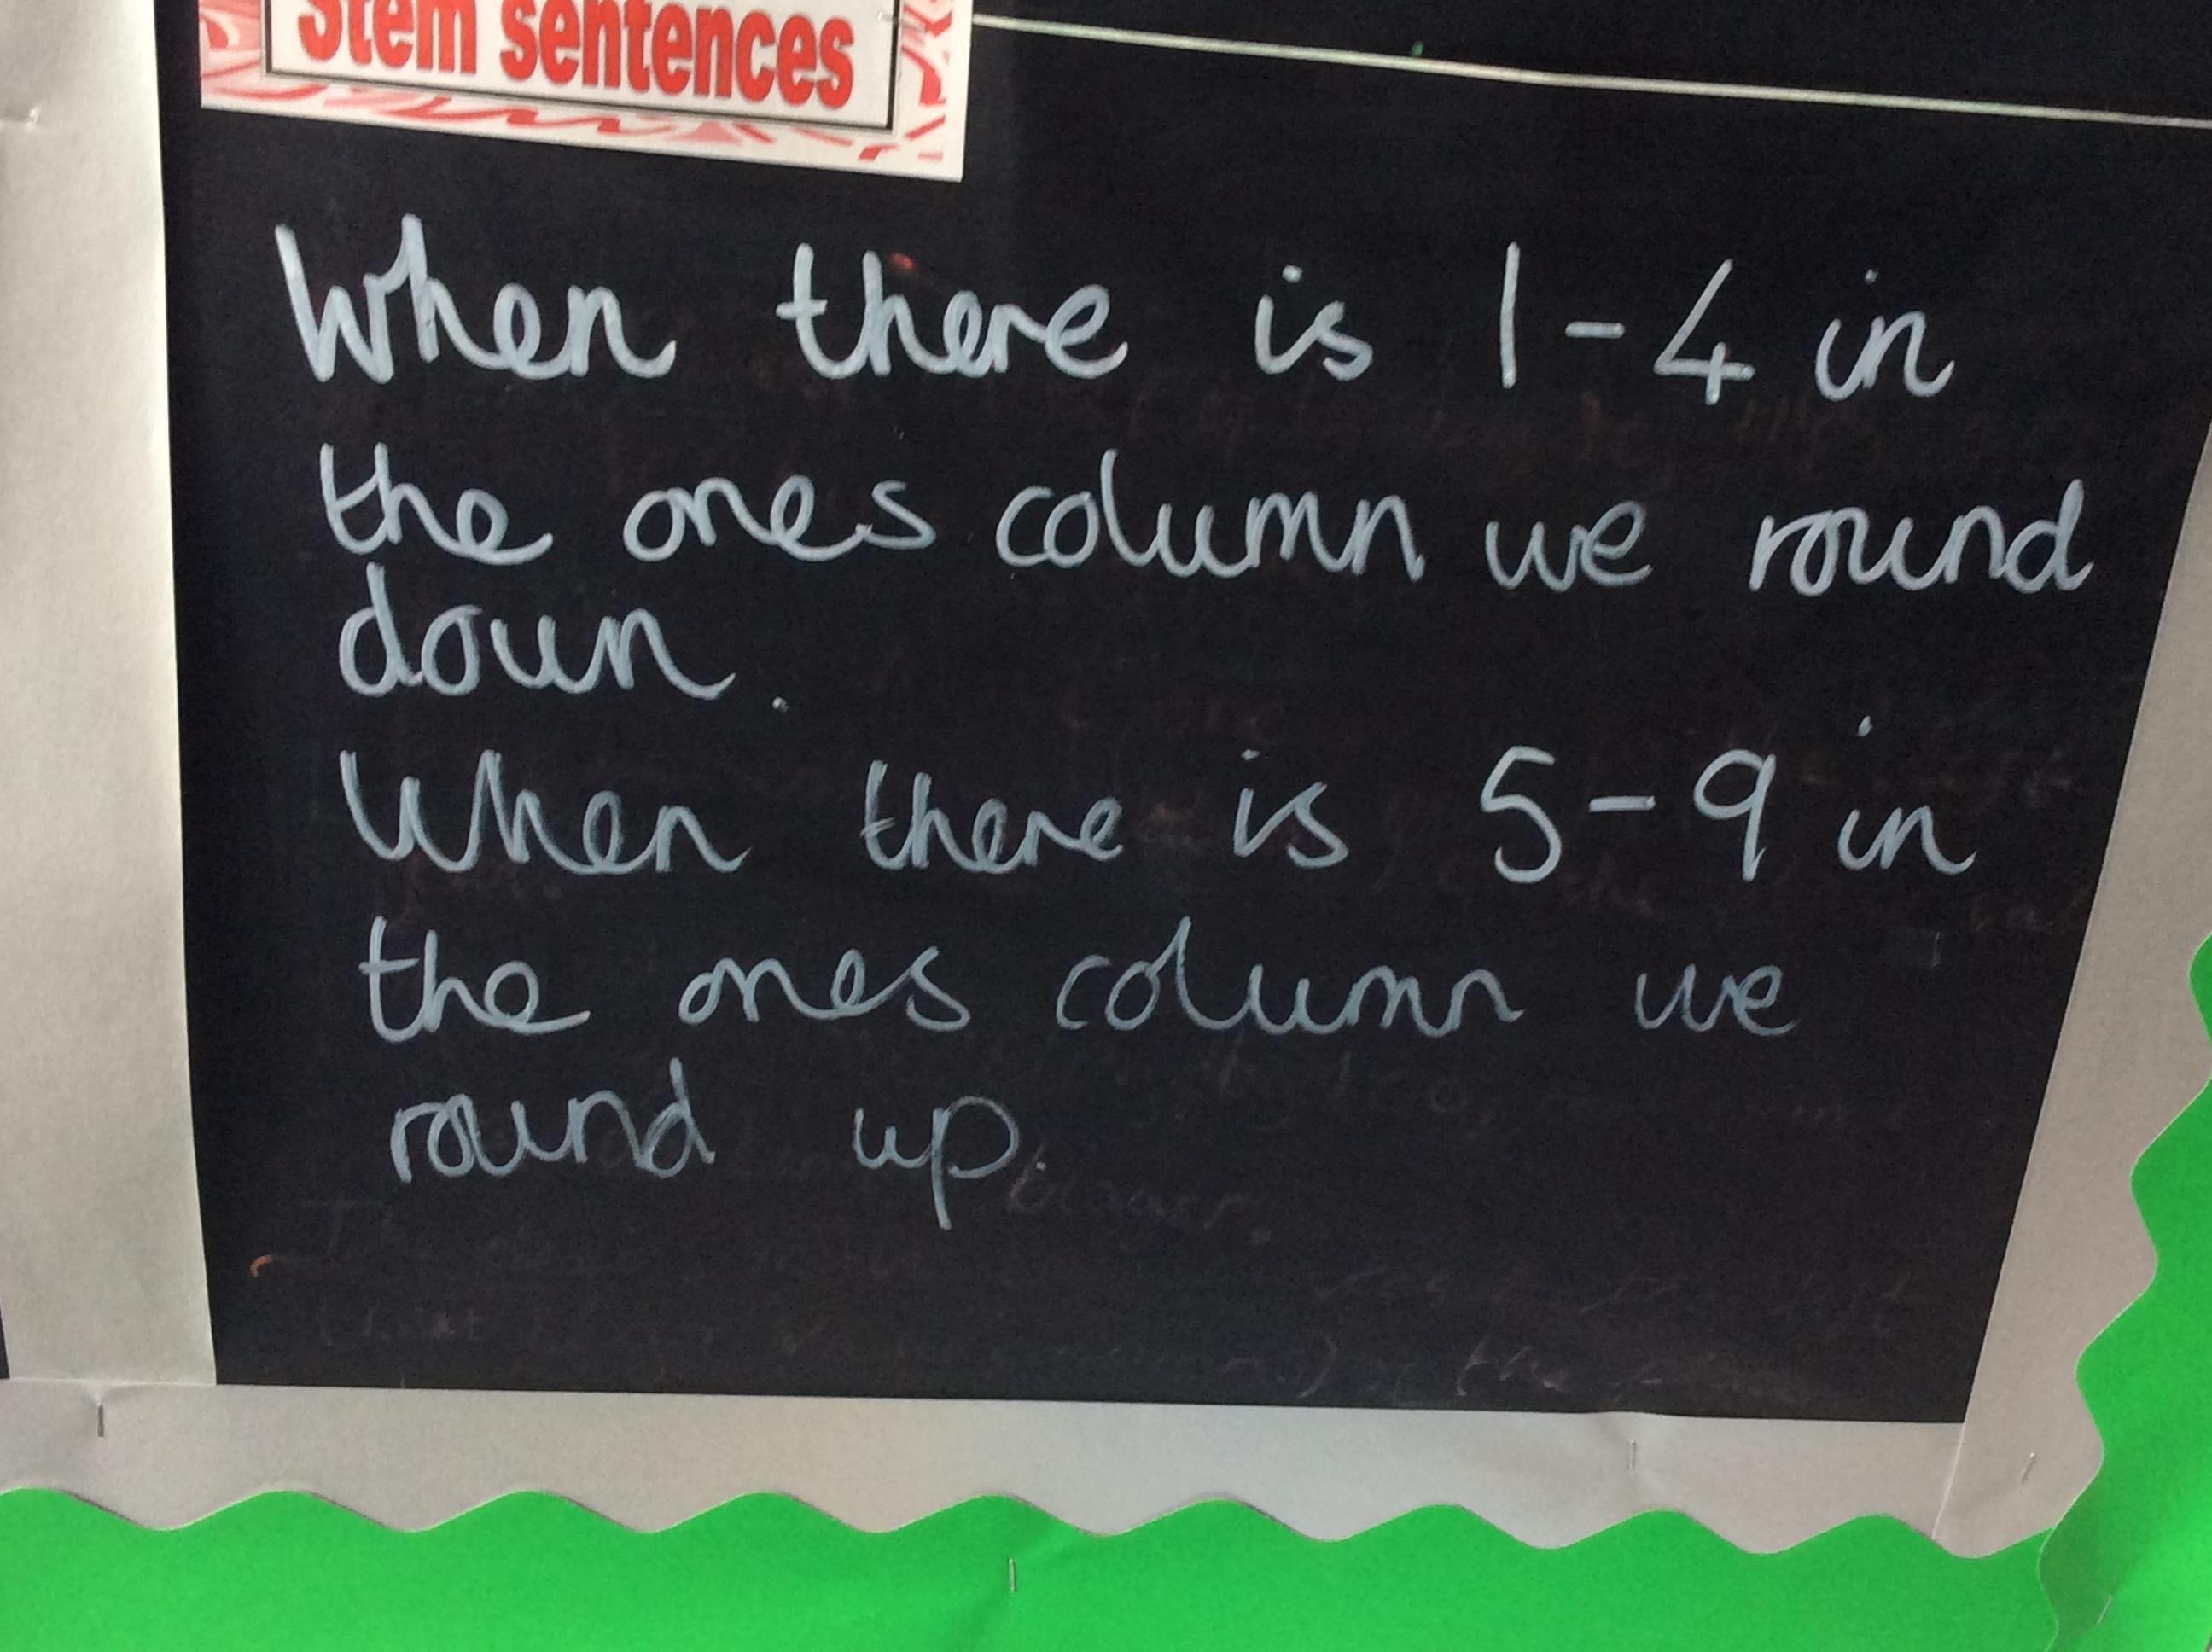 Stem sentences
When there is 1-4 in
the ones column we round
down.
When there is 5-9 in
the ones column we
round up
bigger.